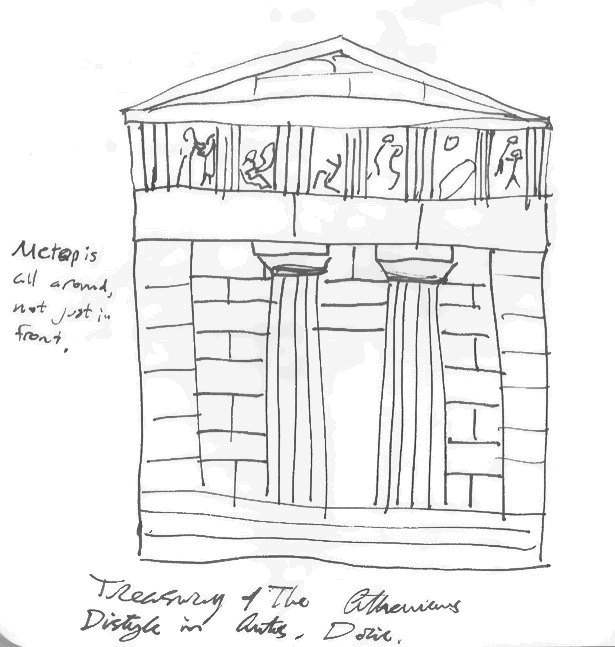 Metop is
all around,
not just in
front.
Treasury of The Athenians
Distyle in Antis, Doric.